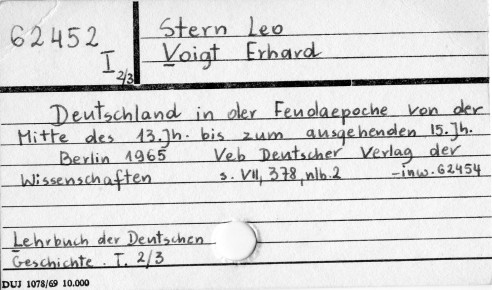 62452
I 2/3
Stern Leo
Voigt Erhard
Deutschland in der Feudaepoche von der
Mitte des 13.Jh. bis zum ausgehenden 15.Jh.
Berlin 1965 Veb Deutscher Verlag der
Wissenschaften s. VII, 378, nlb. 2 -inw. 62454
Lehrbuch der Deutschen
Geschichte. I. 2/3
DUJ 1078/69 10.000